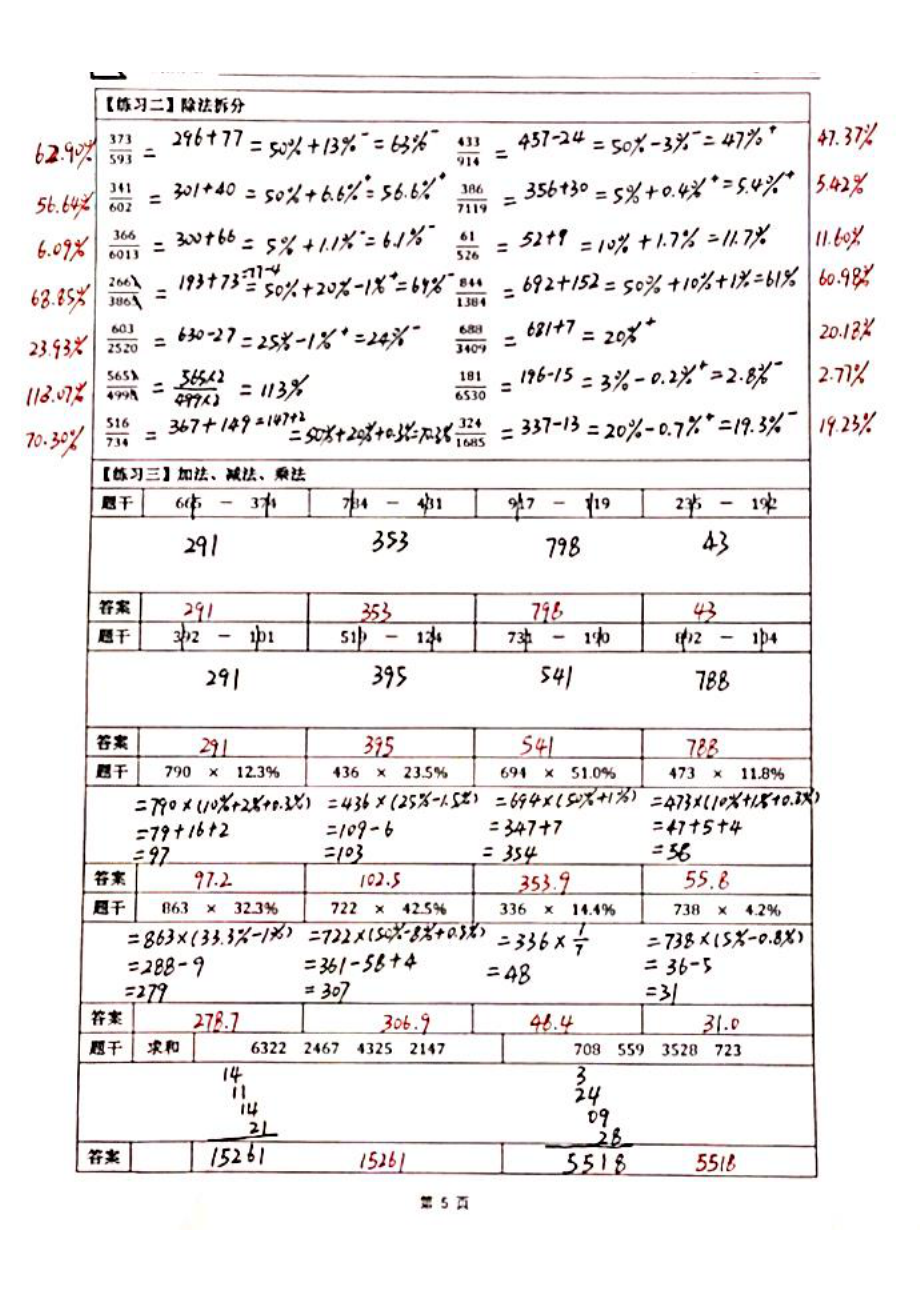 【练习二】除法拆分
62.90% 373/593 = 296+77 = 50%+13%⁻ = 63%⁻ 433/914 = 457-24 = 50%-3%⁻ = 47%⁺ 47.37%
56.64% 341/602 = 301+40 = 50%+6.6%⁺ = 56.6%⁺ 386/7119 = 356+30 = 5%+0.4%⁺ = 5.4%⁺ 5.42%
6.09% 366/6013 = 300+66 = 5%+1.1%⁻ = 6.1%⁻ 61/526 = 52+9 = 10%+1.7% = 11.7% 11.60%
68.85% 266/386 = 193+73=77-4 = 50%+20%-1%⁺ = 69%⁻ 844/1384 = 692+152 = 50%+10%+1% = 61% 60.98%
23.93% 603/2520 = 630-27 = 25%-1%⁺ = 24%⁻ 688/3409 = 681+7 = 20%⁺ 20.18%
113.07% 565/499 = 565×2/499×2 = 113% 181/6530 = 196-15 = 3%-0.2%⁺ = 2.8%⁻ 2.77%
70.30% 516/734 = 367+149=147+2 = 50%+20%+0.3%=70.3% 324/1685 = 337-13 = 20%-0.7%⁺ = 19.3%⁻ 19.23%
【练习三】加法、减法、乘法
题干 665 - 374 784 - 431 917 - 119 235 - 192
291 353 798 43
答案 291 353 798 43
题干 392 - 101 519 - 124 731 - 190 892 - 104
291 395 541 788
答案 291 395 541 788
题干 790 × 12.3% 436 × 23.5% 694 × 51.0% 473 × 11.8%
=790×(10%+2%+0.3%) =436×(25%-1.5%) =694×(50%+1%) =473×(10%+1%+0.8%)
=79+16+2 =109-6 =347+7 =47+5+4
=97 =103 =354 =56
答案 97.2 102.5 353.9 55.8
题干 863 × 32.3% 722 × 42.5% 336 × 14.4% 738 × 4.2%
=863×(33.3%-1%) =722×(50%-8%+0.5%) =336×1/7 =738×(5%-0.8%)
=288-9 =361-58+4 =48 =36-5
=279 =307 =31
答案 278.7 306.9 48.4 31.0
题干 求和 6322 2467 4325 2147 708 559 3528 723
14 3
11 24
14 09
21 28
答案 15261 15261 5518 5518
第 5 页